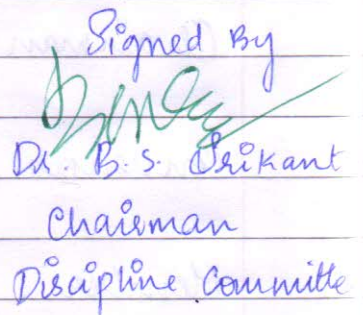 Signed By
Dr. B. S. Srikant
Chairman
Discipline Committe